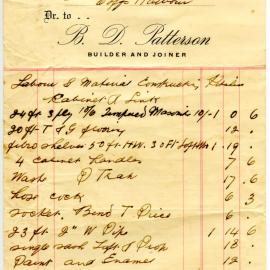 Coffs Harbour
Dr. to ..
B. D. Patterson
BUILDER AND JOINER
Labour & Material Constructing
Cabinet & Sink
24 ft 3 ply 1/6 Tempered Masonite 10/- 1 0 6
20 ft T & G flooring 12 .
fibro shelves 50 ft H.W. 30 ft 1 19 .
4 cabinet handles 7 6
Waste P Trap 17 6
hose cock 6 3
socket. Bend T 6 .
23 ft 2" W Pipe 1 14 6
single sash 18 .
Paint and Enamel 12 .